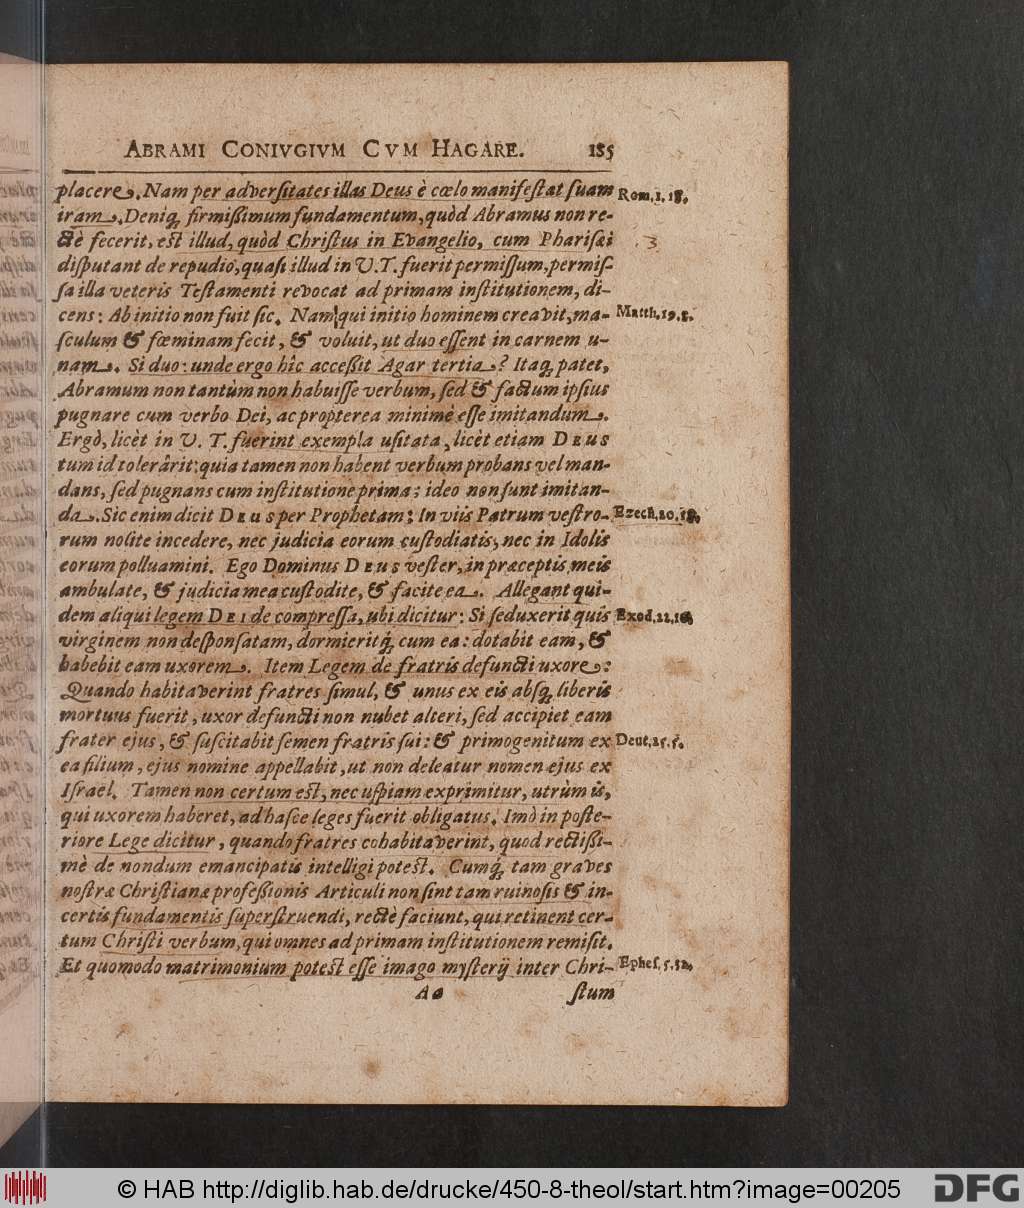 ABRAMI CONIVGIVM CVM HAGARE. 185
placere. Nam per adversitates illas Deus è cœlo manifestat suam
Rom. 1. 18.
iram. Deniq; firmißimum fundamentum, quòd Abramus non re-
ctè fecerit, est illud, quòd Christus in Evangelio, cum Pharisæi
3
disputant de repudio, quasi illud in V. T. fuerit permissum, permis-
sa illa veteris Testamenti revocat ad primam institutionem, di-
cens: Ab initio non fuit sic. Nam qui initio hominem creavit, ma-
Matth. 19. 8.
sculum & fœminam fecit, & voluit, ut duo essent in carnem u-
nam. Si duo: unde ergo hîc acceßit Agar tertia? Itaq; patet,
Abramum non tantùm non habuisse verbum, sed & factum ipsius
pugnare cum verbo Dei, ac propterea minimè esse imitandum.
Ergò, licèt in V. T. fuerint exempla usitata, licèt etiam DEUS
tum id tolerârit: quia tamen non habent verbum probans vel man-
dans, sed pugnans cum institutione prima; ideo non sunt imitan-
da. Sic enim dicit DEUS per Prophetam: In viis Patrum vestro-
Ezech. 20. 18.
rum nolite incedere, nec judicia eorum custodiatis, nec in Idolis
eorum polluamini. Ego Dominus DEUS vester, in præceptis meis
ambulate, & judicia mea custodite, & facite ea. Allegant qui-
dem aliqui legem DEI de compressa, ubi dicitur: Si seduxerit quis
Exod. 22. 16.
virginem non desponsatam, dormieritq; cum ea: dotabit eam, &
habebit eam uxorem. Item Legem de fratris defuncti uxore:
Quando habitaverint fratres simul, & unus ex eis absq; liberis
mortuus fuerit, uxor defuncti non nubet alteri, sed accipiet eam
frater ejus, & suscitabit semen fratris sui: & primogenitum ex
Deut. 25. 5.
ea filium, ejus nomine appellabit, ut non deleatur nomen ejus ex
Israel. Tamen non certum est, nec uspiam exprimitur, utrùm is,
qui uxorem haberet, ad hasce leges fuerit obligatus. Imò in poste-
riore Lege dicitur, quando fratres cohabitaverint, quod rectißi-
mè de nondum emancipatis intelligi potest. Cumq; tam graves
nostræ Christianæ profeßionis Articuli non sint tam ruinosis & in-
certis fundamentis superstruendi, rectè faciunt, qui retinent cer-
tum Christi verbum, qui omnes ad primam institutionem remisit.
Et quomodo matrimonium potest esse imago mysterij inter Chri-
Ephes. 5. 32.
Aa stum
© HAB http://diglib.hab.de/drucke/450-8-theol/start.htm?image=00205
DFG